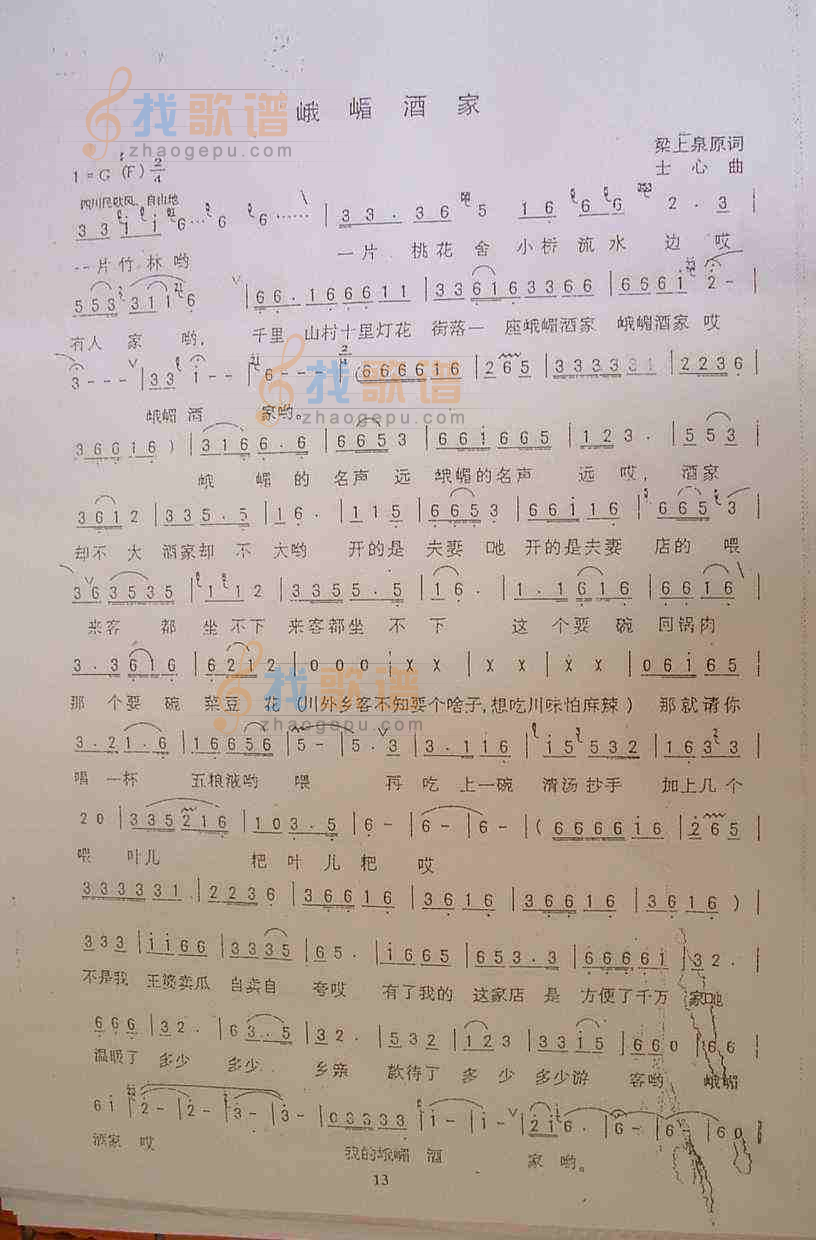 峨嵋酒家
梁上泉原词
1=G (F) 2/4 士心曲
四川民歌风、自由地
3 3 i i 6… 6 6…… | 3 3 3 . 6 5 1 6 6 6 2 . 3 |
一片竹林哟 一片 桃花舍 小桥流水 边哎
5 5 3 3 1 1 6 | 6 6 . 1 6 6 6 1 1 | 3 3 6 1 6 3 3 6 6 | 6 6 6 i 2 -
有人家哟, 千里 山村十里灯花 街落一 座峨嵋酒家 峨嵋酒家哎
3 - - - | 3 3 i - - | 6 - - - 2/4 (6 6 6 6 1 6 | 2 6 5 | 3 3 3 3 3 1 | 2 2 3 6 |
峨嵋酒 家哟。
3 6 6 1 6 ) | 3 1 6 6 . 6 | 6 6 5 3 | 6 6 i 6 6 5 | 1 2 3 . | 5 5 3 |
峨嵋的名声远 峨嵋的名声 远哎, 酒家
3 6 1 2 | 3 3 5 . 5 | 1 6 . | 1 1 5 | 6 6 5 3 | 6 6 1 6 | 6 6 5 3
却不大 酒家却不大哟 开的是夫妻吔开的是夫妻 店的喂
3 6 3 5 3 5 | 1 1 2 | 3 3 5 5 . 5 | 1 6 . | 1 . 1 6 1 6 | 6 6 1 6 |
来客都坐不下来客都坐不下 这个要碗回锅肉
3 . 3 6 1 6 | 6 2 1 2 | 0 0 0 | X X | X X X | X X | 0 6 1 6 5 |
那个要碗菜豆花(川外乡客不知要个啥子,想吃川味怕麻辣)那就请你
3 . 2 1 . 6 | 1 6 6 5 6 | 5 - | 5 . 3 | 3 . 1 1 6 | i 5 5 3 2 | 5 . 1 6 |
喝一杯 五粮液哟 喂 再吃上一碗 清汤抄手 加上几个
2 0 | 3 3 5 2 1 6 | 1 0 3 . 5 | 6 - | 6 - | 6 - | ( 6 6 6 6 1 6 | 2 6 5 |
喂叶儿 粑叶儿粑哎
3 3 3 3 3 1 | 2 2 3 6 | 3 6 6 1 6 | 3 6 1 6 | 3 6 6 1 6 | 3 6 1 6 ) |
3 3 3 | i i 6 6 | 3 3 3 5 | 6 5 . | i 6 6 5 | 6 5 3 . 3 | 6 6 6 6 i | 3 2 . |
不是我 王婆卖瓜 自卖自 夸哎 有了我的 这家店是 方便了千万 家吔
6 6 6 | 3 2 . | 6 3 . 5 | 3 2 . | 5 3 2 | 1 2 3 | 3 5 1 5 | 6 6 0 | 6 6 |
温暖了 多少 多少 乡亲 款待了 多少 多少游 客哟 峨嵋
6 i | 2 - | 2 - | 3 - | 3 - | 0 3 3 3 3 | i - | i - | 2 i 6 . | 6 - | 6 - | 6 0 |
酒家哎 我的峨嵋酒 家哟。
13
找歌谱
zhaogepu.com
找歌谱
zhaogepu.com
找歌谱
zhaogepu.com
找歌谱
zhaogepu.com